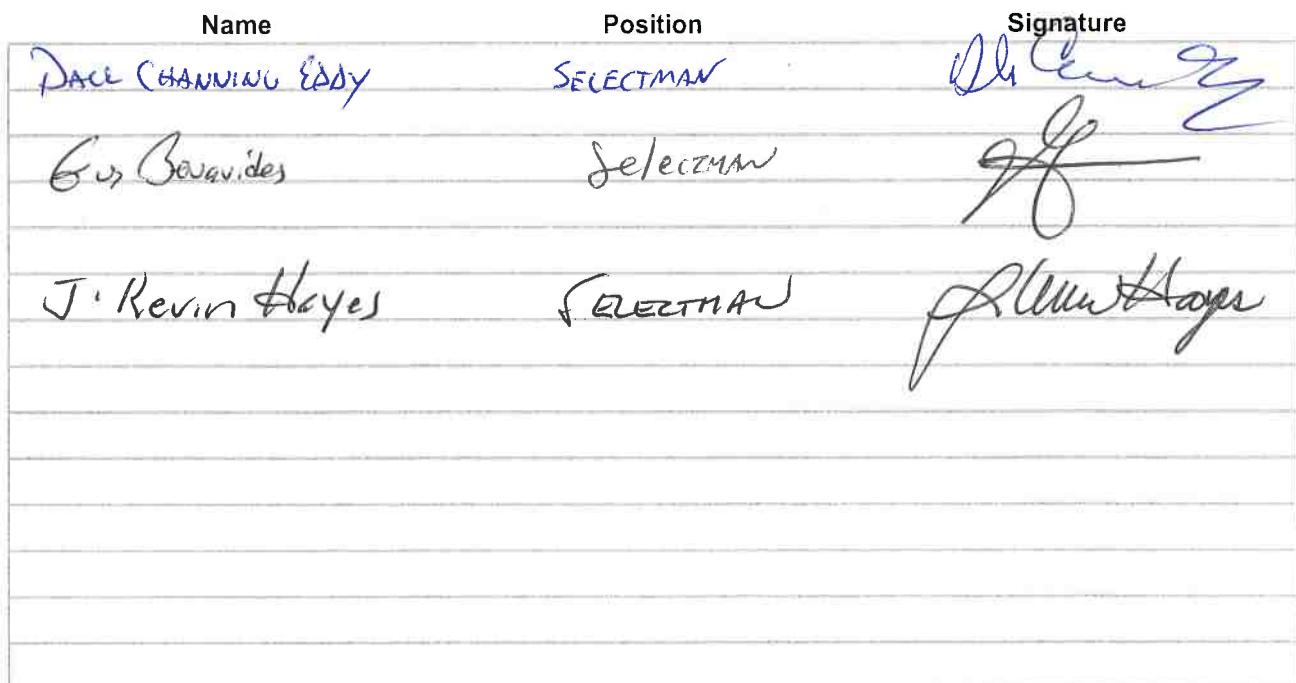 Name Position Signature
DALE CHANNING EDDY SELECTMAN
Gus Benavides SelectMAN
J. Kevin Hayes SELECTMAN Hayes